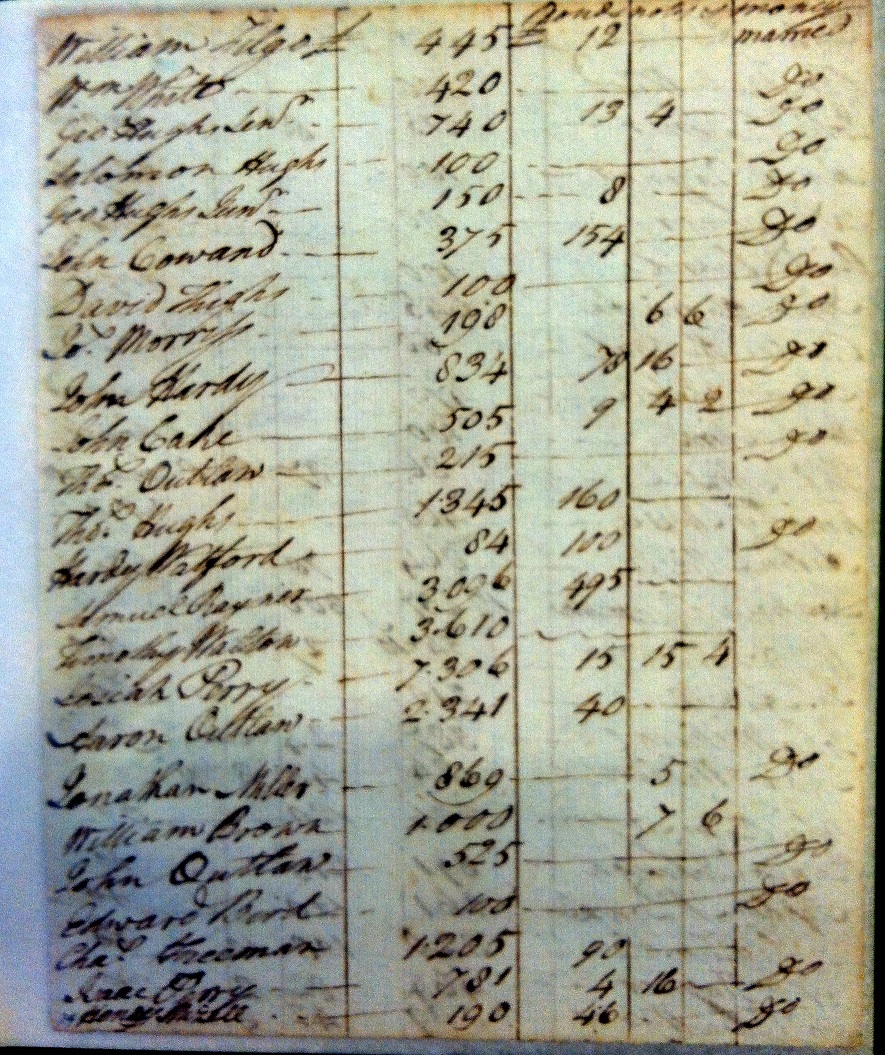 Bonds notes & money
William 445 12 married
Wm White 420 Do
Geo Hughs Senr 740 13 4 Do
Solomon Hughs 100 Do
Geo Hughs Junr 150 8 Do
John Cowand 375 154 Do
David Hughs 100 Do
Jos Morryss 198 6 6 Do
John Hardy 834 78 16 Do
John Cake 505 9 4 2 Do
Thos Outlaw 215 Do
Thos Hughs 1345 160
Hardy Watford 84 100 Do
Samuel Rayner 3,006 495
Timothy Walton 3,610
Josiah Perry 7,306 15 15 4
Aaron Outlaw 2,341 40
Jonathan Miller 869 5 Do
William Brown 1,000 7 6
John Outlaw 525 Do
Edward Bird 100 Do
Chas Freeman 1,205 90
Isaac Perry 781 4 16 Do
Mizell 190 46 Do